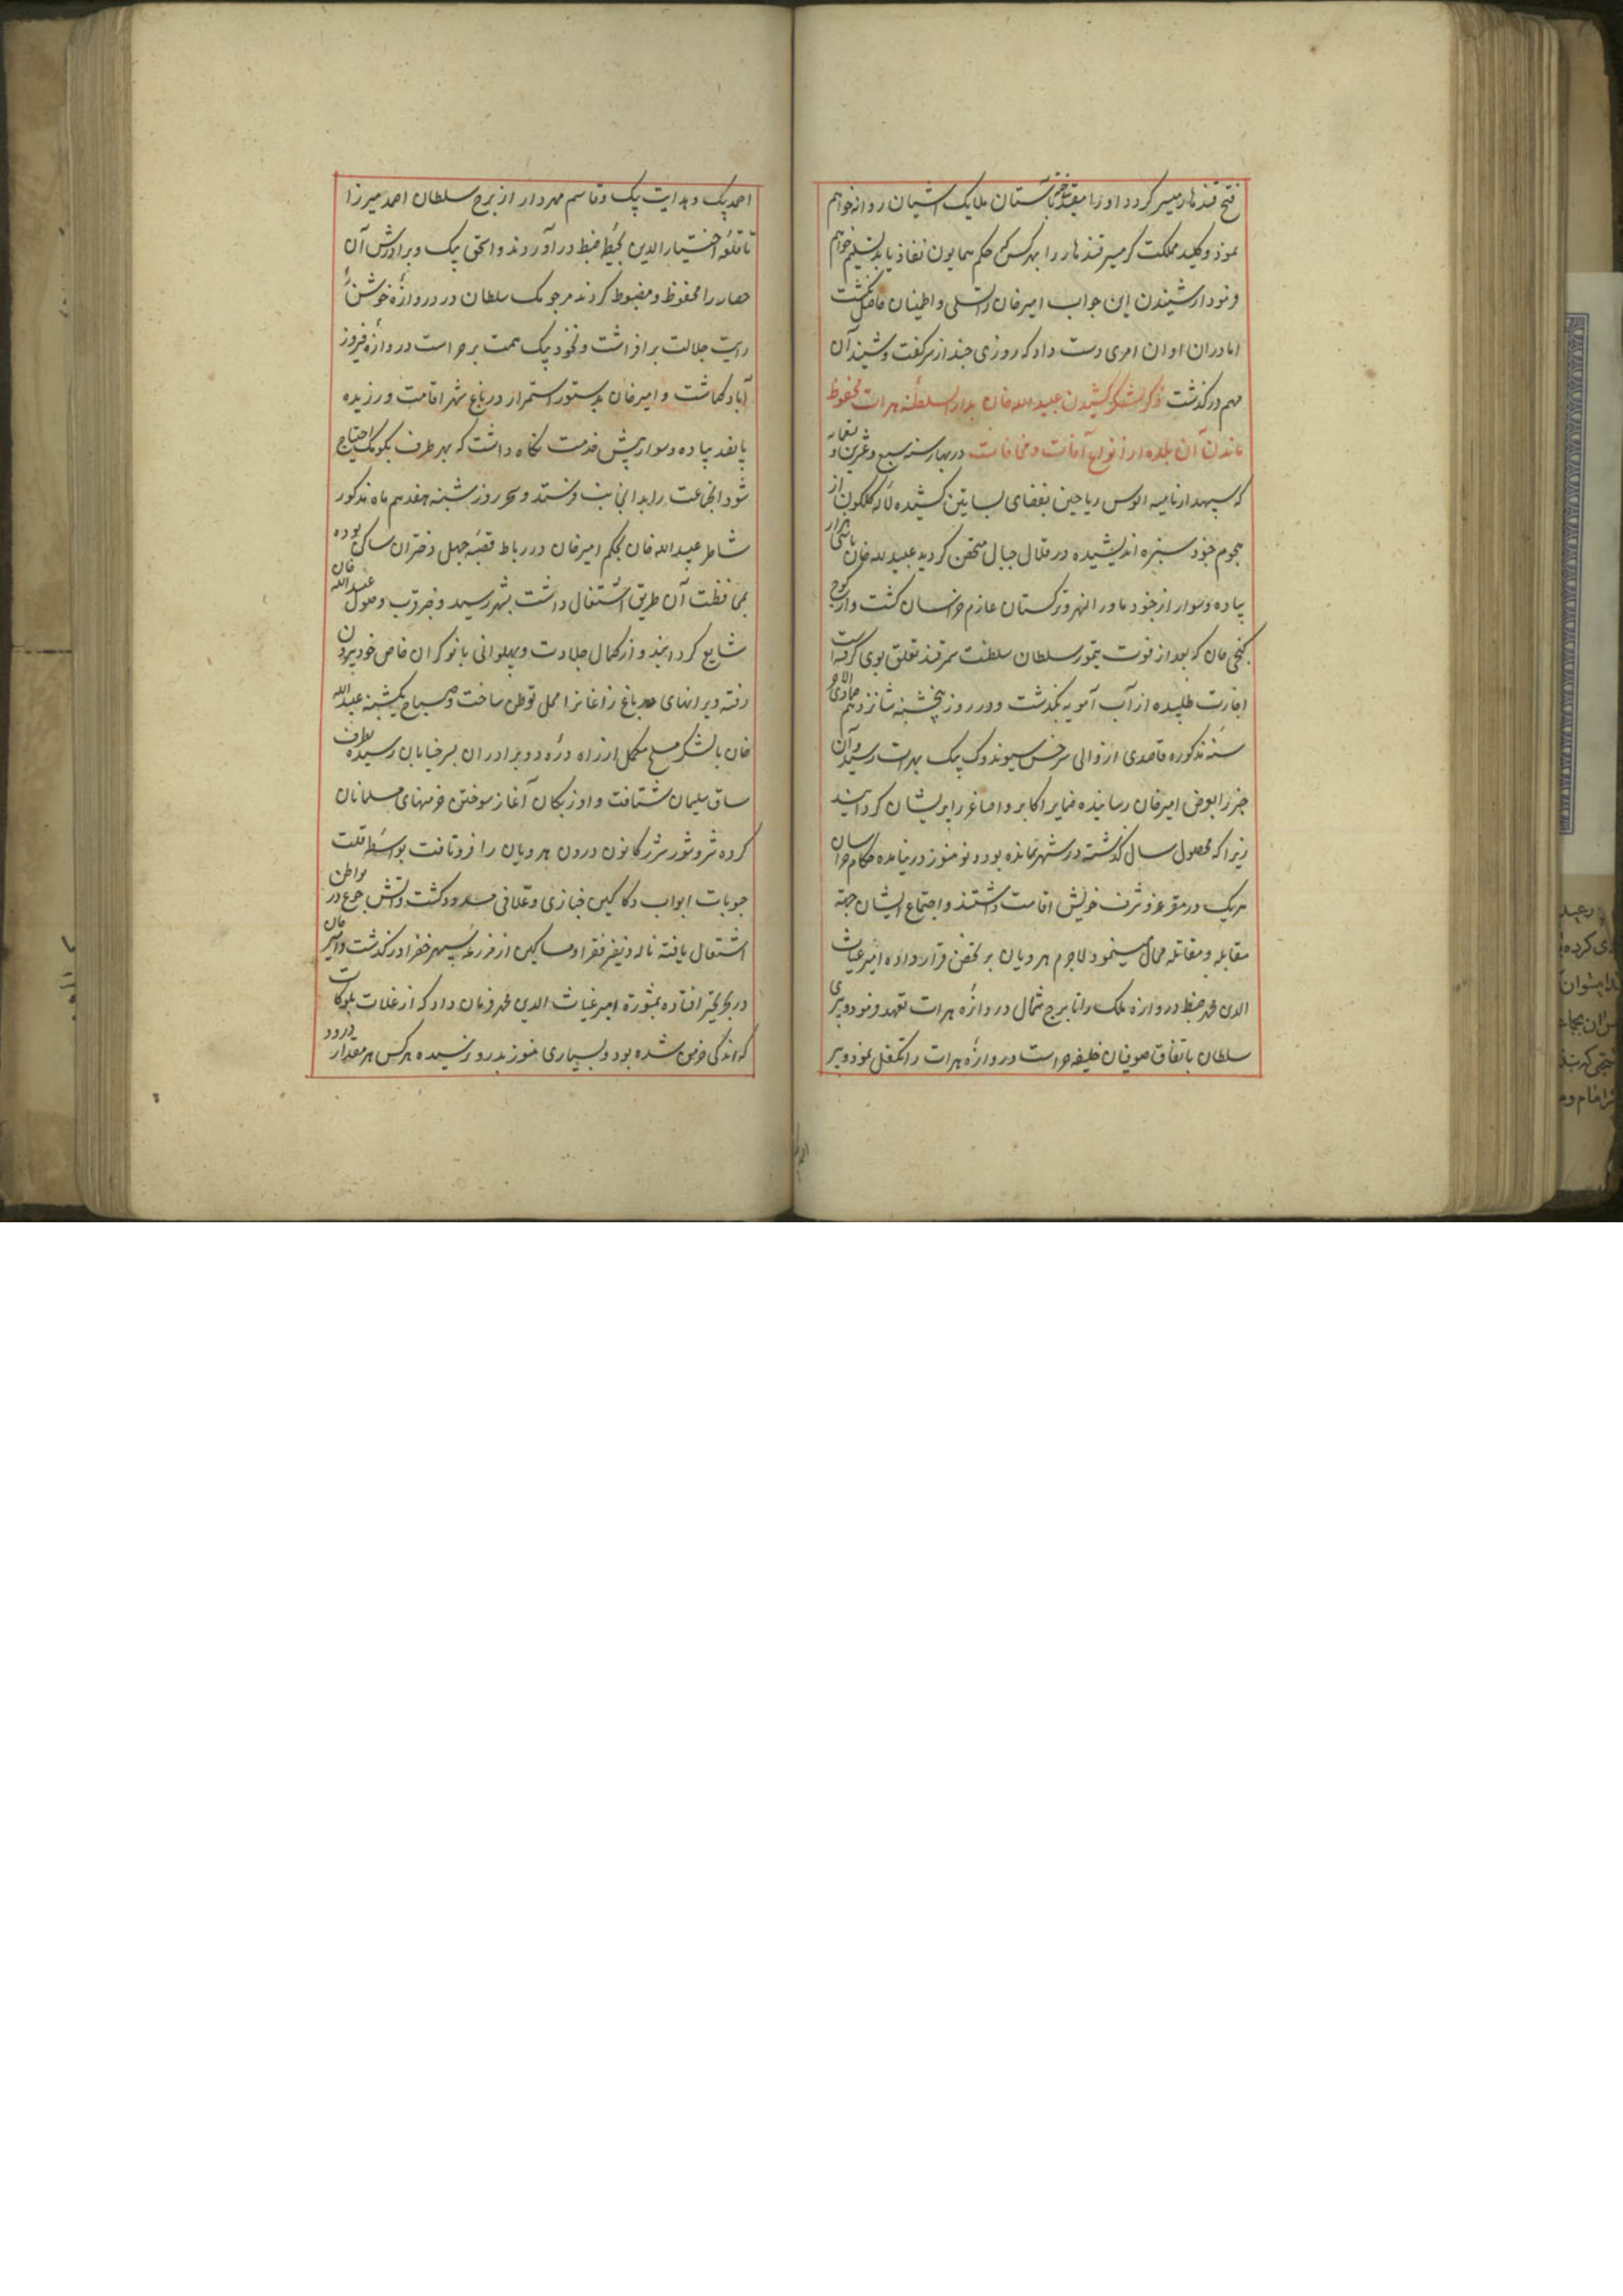 فتح قندهار میسر کردد او را بآستان ملایک آشیان روانه خواهم
نمود و کلید مملکت کرمسیر قندهار را بهر کس که حکم همایون نفاذ یابد تسلیم خواهم
فرمود از شنیدن این جواب امیرخان را تسلی و اطمینان حاصل کشت
اما در ان اوان امری دست داد که روزی چند از سر کفت و شنید آن
مهم در کذشت ذکر لشکر کشیدن عبیدالله خان بدار السلطنه هرات و محفوظ
ماندن آن بلده از انواع آفات و مخافات در بهار سنه سبع و عشرین و تسعمایه
که سپهدار نامیه الوس ریاحین بفضای بساتین کشیده لاله کلکون از
هجوم جنود سبزه اندیشیده در قلال جبال متحصن کردید عبیدالله خان با سی هزار
پیاده و سوار از حدود ماوراالنهر و ترکستان عازم خراسان کشت و از کوچ
کنجی خان که بعد از فوت تیمور سلطان سلطنت سمرقند تعلق بوی کرفته است
اجازت طلبیده از آب آمویه بکذشت و در روز پنجشنبه شانزدهم جمادی الاول
سنه مذکوره قاصدی از والی سرخس سیوندوک بیک بهرات رسید و آن
خبر را بعرض امیرخان رسانیده ضمایر اکابر و اصاغر را پریشان کردانید
زیرا که محصول سال کذشته در شهر نمانده بود و نو هنوز در نیامده حکام خراسان
هریک در مقر عز و شرف خویش اقامت داشتند و اجتماع ایشان جهة
مقابله و مقاتله محال مینمود لاجرم هرویان بر تحصن قرار داده امیر غیاث
الدین محمد ضبط دروازه ملک را تا برج شمال دروازه هرات تعهد فرمود و پیری
سلطان باتفاق صوفیان خلیفه حراست دروازه هرات را متکفل نمود و پیر
احمد بیک و هدایت بیک و قاسم مهردار از برج سلطان احمد میرزا
تا قلعه اختیارالدین بحیطه ضبط در آوردند و اسحق بیک و برادرش آن
حصار را محفوظ و مضبوط کردند مرجومک سلطان در دروازه خوش
رایت جلالت برافراشت و نخود بیک همت بر حراست دروازه فیروز
آباد کماشت و امیرخان بدستور استمرار در باغ شهر اقامت ورزیده
پانصد پیاده و سوار پیش خدمت نکاه داشت که بهر طرف بکومک احتیاج
شود آنجماعت را بدانجانب فرستد و سحر روز شنبه هفدهم ماه مذکور
شاطر عبیدالله خان بحکم امیرخان در رباط قصبه چهل دختران ساکن بوده
بمحافظت آن طریق اشتغال داشت بشهر رسید و خبر قرب وصول عبیدالله خان
شایع کردانید و از کمال جلادت و پهلوانی با نوکران خاص خود بیرون
رفته ویرانهای باغ زاغانرا محل توطن ساخت و صباح یکشنبه عبیدالله
خان با لشکر مسلح مکمل از راه دره دو برادران بسر خیابان رسیده بطرف
ساق سلیمان شتافت و اوزبکان آغاز سوختن خرمنهای مسلمانان
کرده شر و شور شرر کانون درون هرویان را فرو تافت بواسطه قلت
حبوبات ابواب دکاکین خبازی و علافی مسدود کشت و آتش جوع در بواطن
اشتعال یافته ناله و نفیر فقرا و مساکین از مزرعه سپهر خضرا در کذشت و امیر خان
در بحر تحیر افتاده بمشورة امیر غیاث الدین محمد فرمان داد که از غلات بلوکات
که اندکی خرمن شده بود و بسیاری هنوز بدرو نرسیده هر کس هر مقدار درود